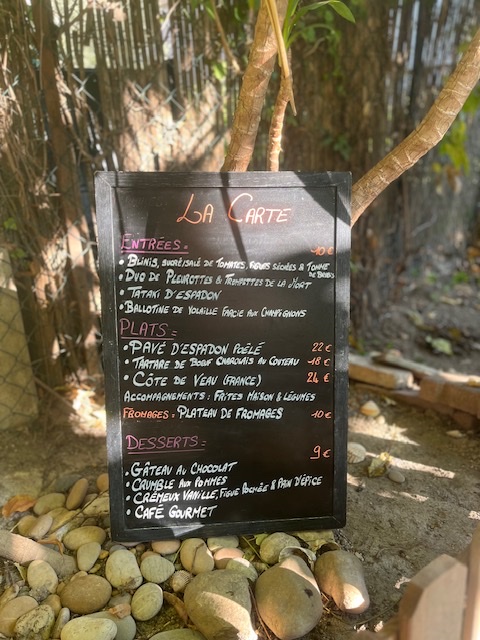 LA CARTE
ENTRÉES : 10 €
• BLINIS, SUCRÉ/SALÉ DE TOMATES, FIGUES SÉCHÉES & TOMME
DE BREBIS
• DUO DE PLEUROTTES & TROMPETTES DE LA MORT
• TATAKI D'ESPADON
• BALLOTINE DE VOLAILLE FARCIE AUX CHAMPIGNONS
PLATS :
• PAVÉ D'ESPADON POÊLÉ 22 €
• TARTARE DE BŒUF CHAROLAIS AU COUTEAU 18 €
• CÔTE DE VEAU (FRANCE) 24 €
ACCOMPAGNEMENTS : FRITES MAISON & LÉGUMES
FROMAGES : PLATEAU DE FROMAGES 10 €
DESSERTS : 9 €
• GÂTEAU AU CHOCOLAT
• CRUMBLE AUX POMMES
• CRÉMEUX VANILLE, FIGUE POCHÉE & PAIN D'ÉPICE
• CAFÉ GOURMET